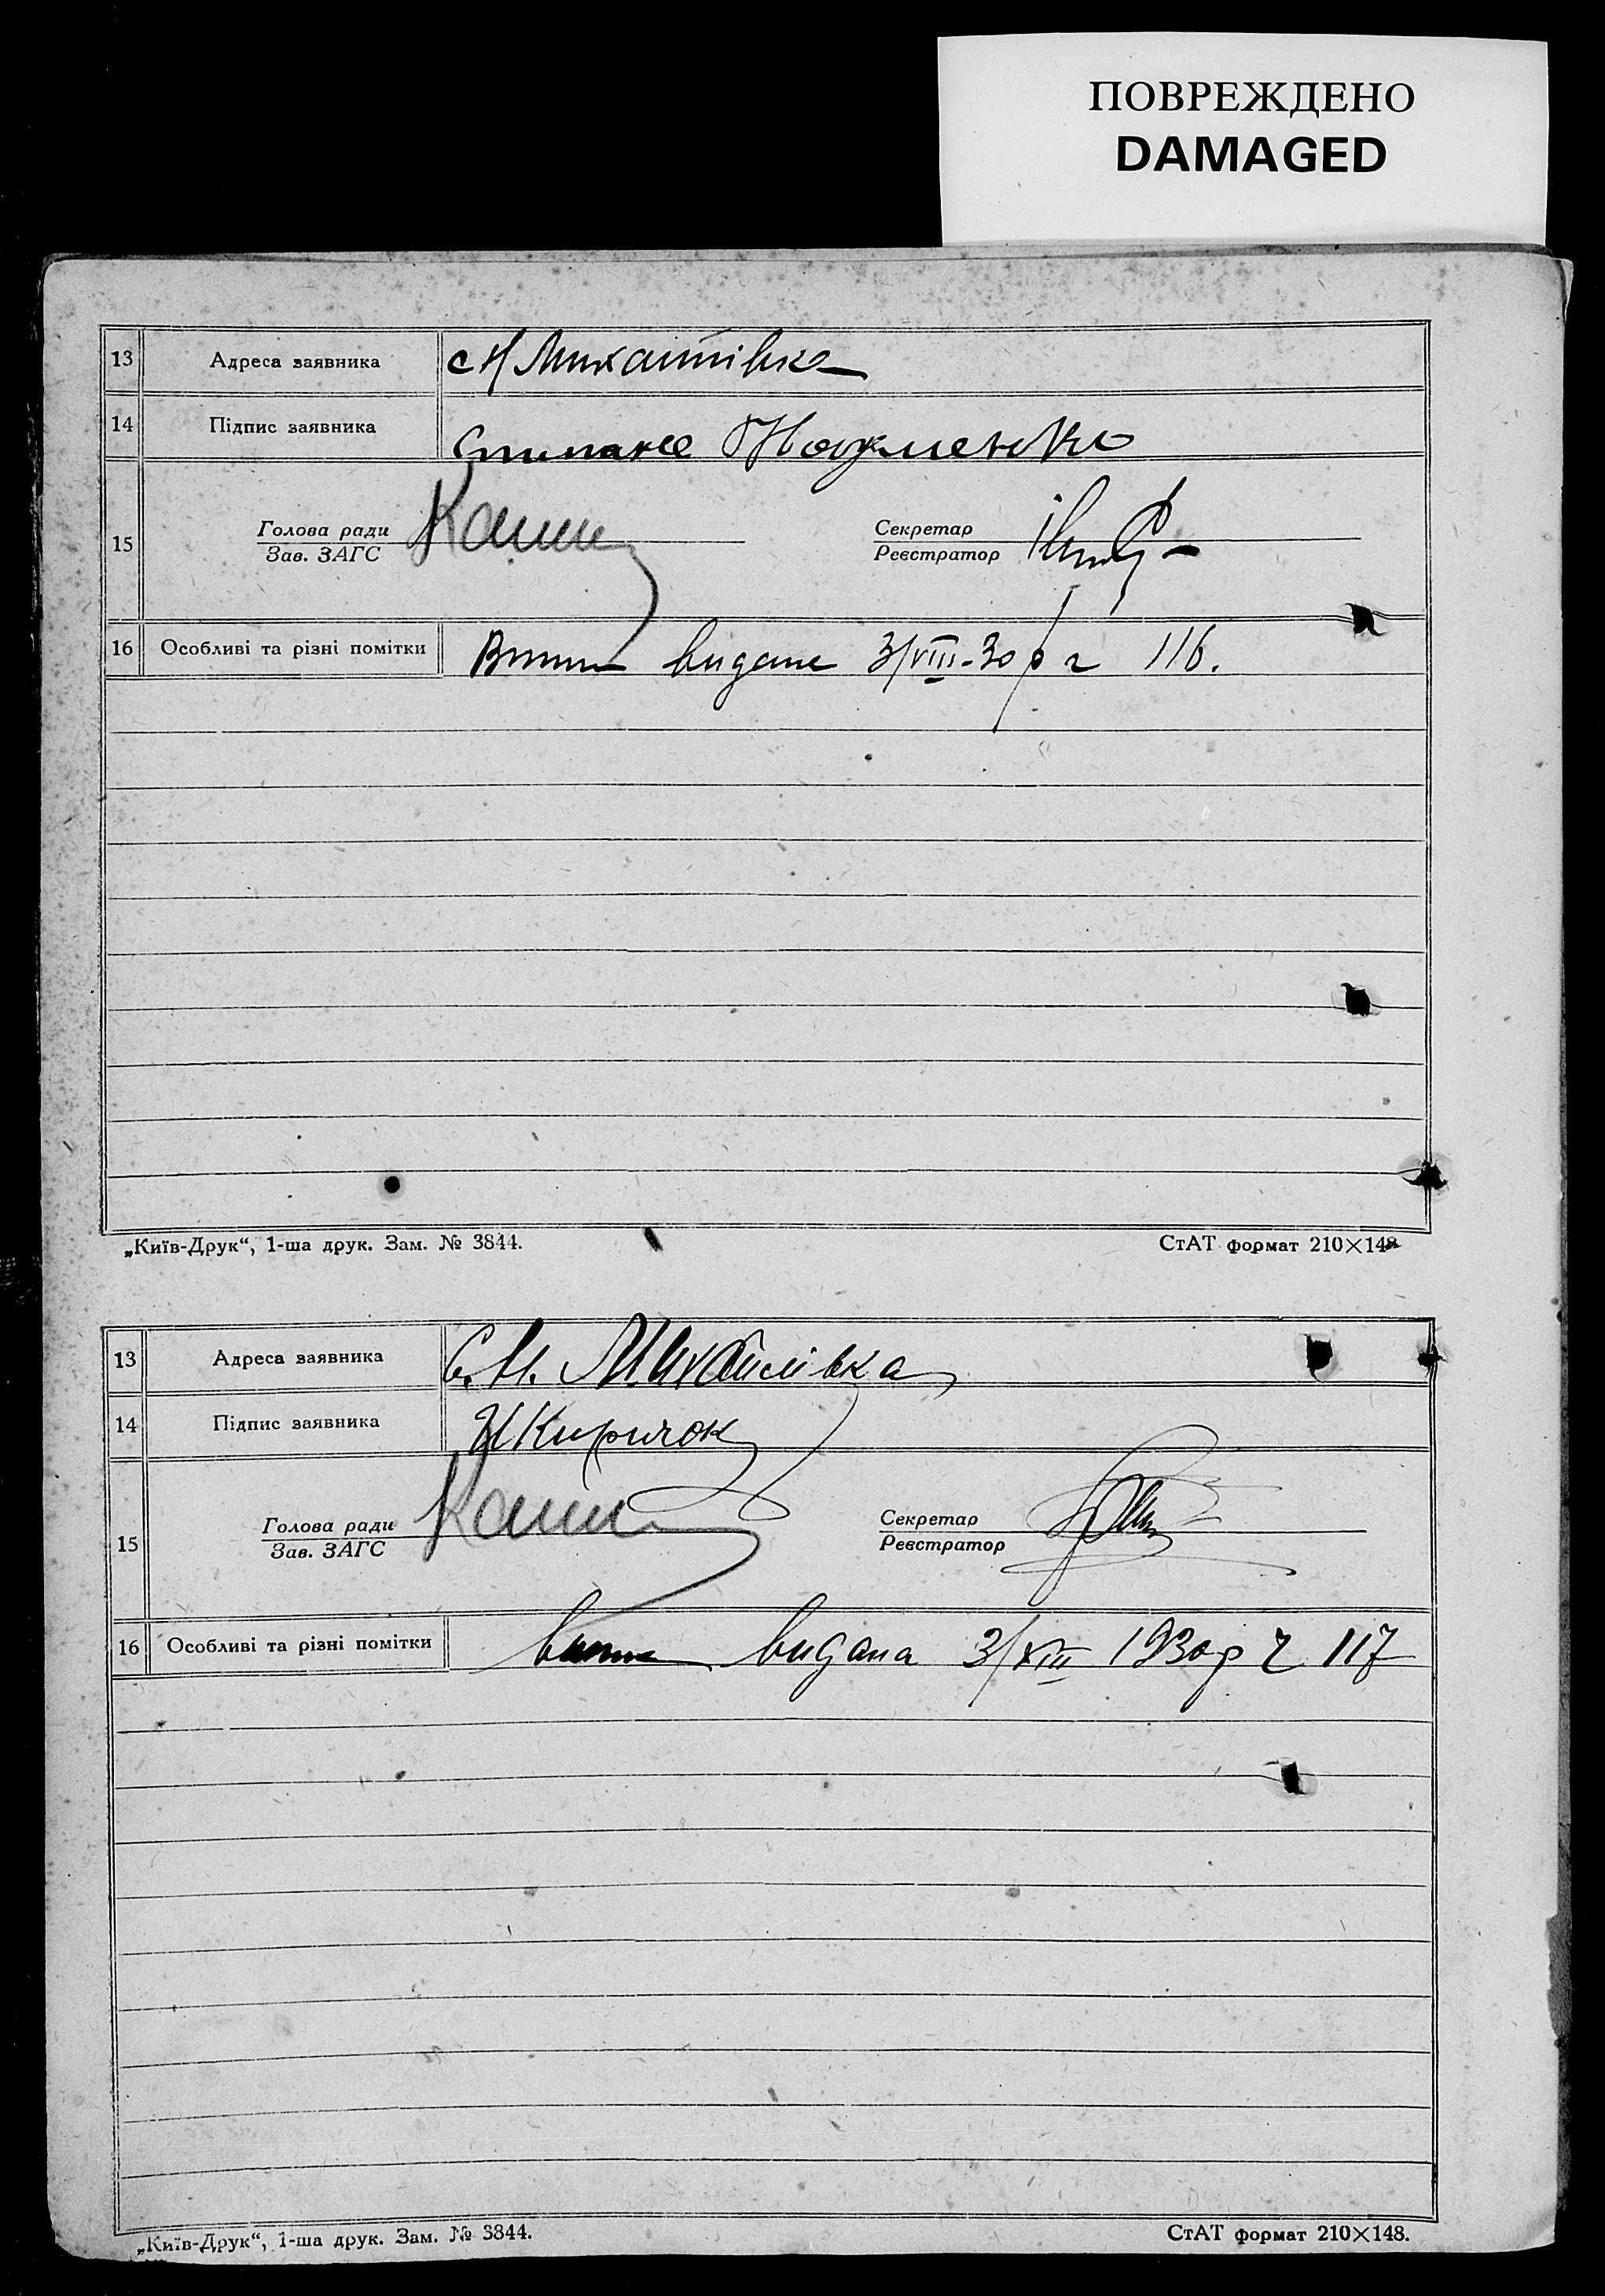 ПОВРЕЖДЕНО
DAMAGED
13 Адреса заявника с М Михайлівка
14 Підпис заявника
15 Голова ради Секретар
Зав. ЗАГС Реєстратор
16 Особливі та різні помітки видане 3/VIII-30 р ч 116.
„Київ-Друк“, 1-ша друк. Зам. № 3844. СтАТ формат 210×148
13 Адреса заявника С. М. Михайлівка
14 Підпис заявника Киричок
15 Голова ради Секретар
Зав. ЗАГС Реєстратор
16 Особливі та різні помітки видана 3/XIII 1930 р ч 117
„Київ-Друк“, 1-ша друк. Зам. № 3844. СтАТ формат 210×148.